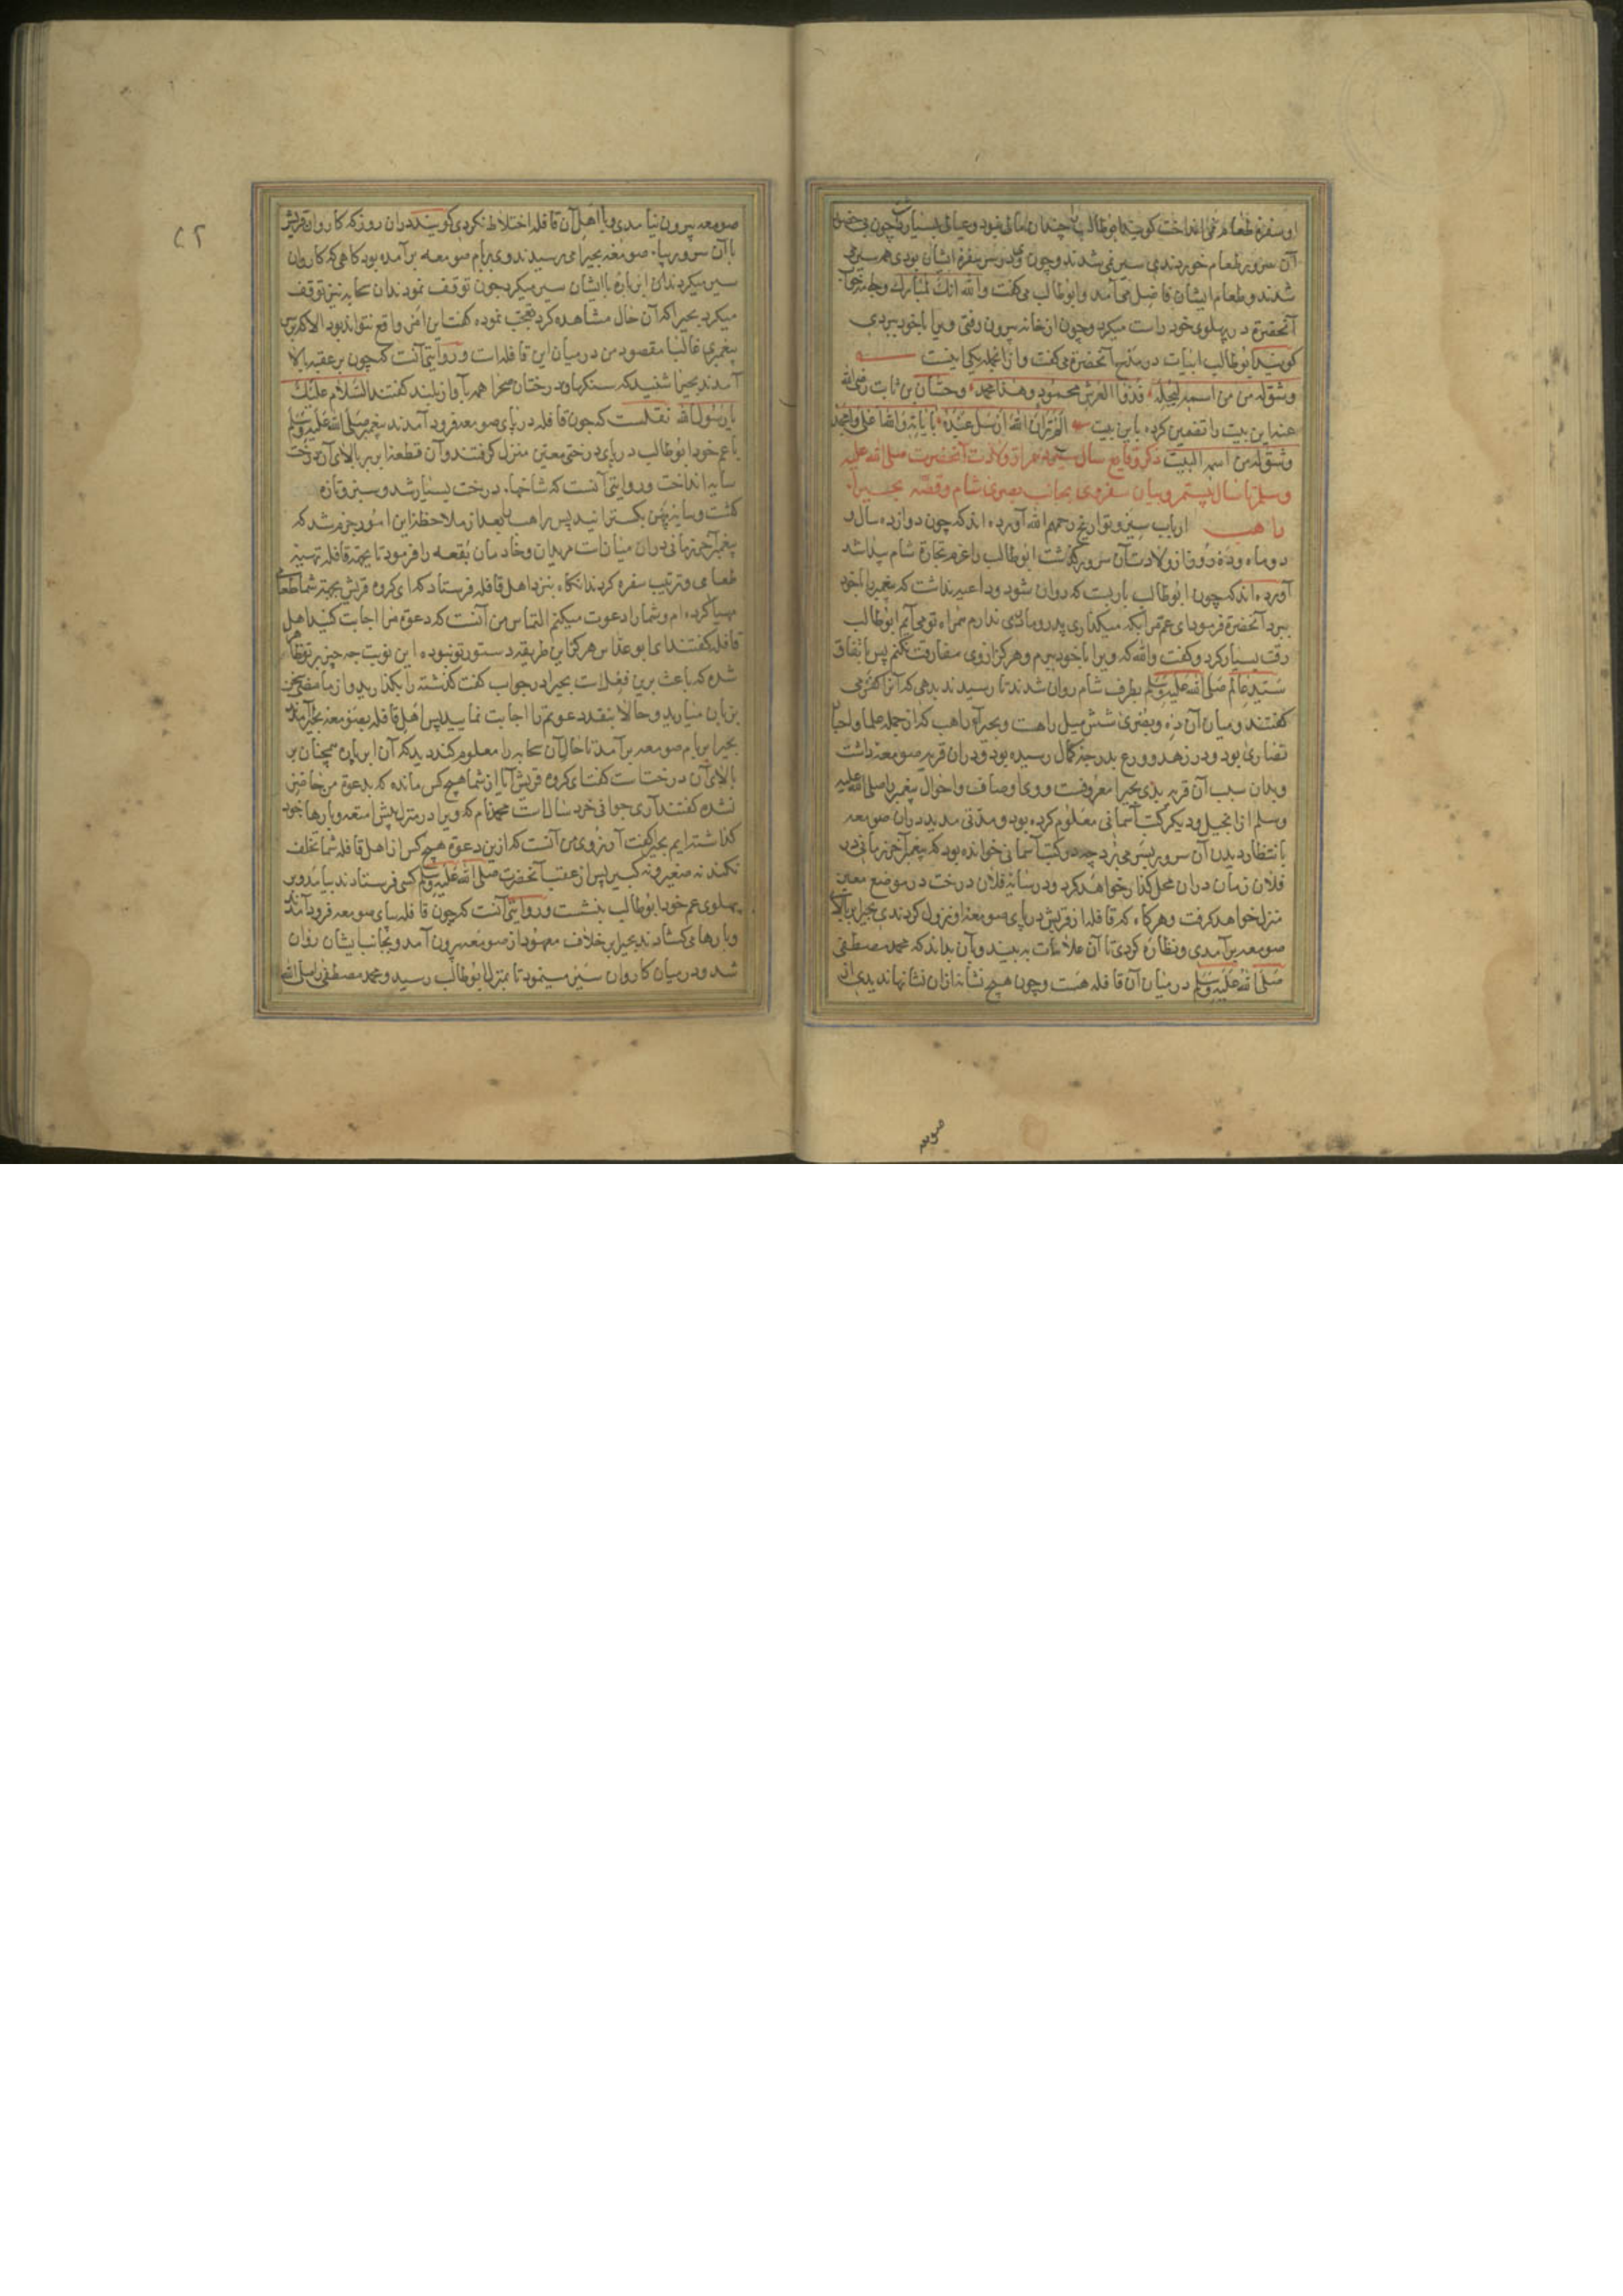 او سفره طعام نمی انداخت گویند ابوطالب چندان مالی نبود و عیالی بسیار داشت چون بی حضور
آن سرور طعام خوردندی سیر نمی شدند و چون وی بر سر سفره ایشان بودی همه سیر می
شدند و طعام ایشان فاضل می آمد و ابوطالب می گفت والله انک لمبارک و جامه خواب
آنحضرة در پهلوی خود راست میکرد و چون از خانه بیرون رفتی ویرا با خود ببردی
گویند ابوطالب ابیات در مدح آنحضرة می گفت و از انجمله یکی اینست
وشق له من اسمه لیجله فذو العرش محمود وهذا محمد و حسان بن ثابت رضی الله
عنه این بیت را تضمین کرده باین بیت الم تر ان الله ارسل عبده بآیاته والله اعلی وامجد
وشق له من اسمه البیت ذکر وقایع سال سیزدهم از ولادت آنحضرت صلی الله علیه
وسلم تا سال بیستم و بیان سفر وی بجانب بصری شام و قصه بحیرا
راهب ارباب سیر و تواریخ رحمهم الله آورده اند که چون دوازده سال و
دو ماه و ده روز از ولادت آن سرور گذشت ابوطالب را عزم تجارة شام پیدا شد
آورده اند که چون ابوطالب بار بست که روان شود و داعیه نداشت که پیغمبر را با خود
ببرد آنحضرة فرمود ای عم مرا بکه میگذاری پدر و مادری ندارم همراه تو می آیم ابوطالب
رقت بسیار کرد و گفت والله که ویرا با خود ببرم و هرگز از وی مفارقت نکنم پس باتفاق
سید عالم صلی الله علیه وسلم بطرف شام روان شدند تا رسیدند بدهی که آنرا کفر می
گفتند و میان آن ده و بصری شش میل راهست و بحیرآء راهب که از جمله علما و احبار
نصاری بود و در زهد و ورع بدرجه کمال رسیده بود و در ان قریه صومعه داشت
و بدان سبب آن قریه بدیر بحیرا معروفست و وی اوصاف و احوال پیغمبر را صلی الله علیه
وسلم از انجیل و دیگر کتب آسمانی معلوم کرده بود و مدتی مدید در ان صومعه
بانتظار دیدن آن سرور بسر می برد چه در کتب آسمانی خوانده بود که پیغمبر آخر زمانی در
فلان زمان در ان محل گذار خواهد کرد و در سایه فلان درخت در موضع معین
منزل خواهد گرفت و هرگاه که قافله از قریش در پای صومعه او نزول کردندی بحیرا ببالای
صومعه برآمدی و نظاره کردی تا آن علامات به بیند و بآن بداند که محمد مصطفی
صلی الله علیه وسلم در میان آن قافله هست و چون هیچ نشانه از ان نشانها ندیدی از
صومعه
صومعه بیرون نیامدی و با اهل آن قافله اختلاط نکردی گویند در ان روز که کاروان قریش
با آن سرور بپای صومعه بحیرا می رسیدند وی ببام صومعه برآمده بود گاهی که کاروان
سیر میکردند آن ابر پاره با ایشان سیر میکرد چون توقف نمودند ان سحابه نیز توقف
میکرد بحیرا که آن حال مشاهده کرد تعجب نموده گفت این امر واقع نتواند بود الا که بر سر
پیغمبری غالبا مقصود من در میان این قافله است و روایتی آنست که چون بر عقبه بالا
آمدند بحیرا شنید که سنگها و درختان صحرا همه بآواز بلند گفتند السلام علیک
یا رسول الله نقلست که چون قافله در پای صومعه فرود آمدند پیغمبر صلی الله علیه وسلم
با عم خود ابوطالب در پای درختی معین منزل گرفتند و آن قطعه ابر بر بالای آن درخت
سایه انداخت و روایتی آنست که شاخهای درخت بسیار شد و سبز و تازه
گشت و سایه پهن بگسترانید پس راهب را بعد از ملاحظه این امور جزم شد که
پیغمبر آخر زمانی در ان میانست مریدان و خادمان بقعه را فرمود تا بجهة قافله تهیه
طعامی و ترتیب سفره کردند آنگاه بنزد اهل قافله فرستاد که ای گروه قریش بجهة شما طعامی
مهیا کرده ام و شما را دعوت میکنم التماس من آنست که دعوة مرا اجابت کنید اهل
قافله گفتند ای ابو عداس هرگز این طریقه دستور تو نبوده این نوبت چه چیز بر تو ظاهر
شده که باعث برین فعلست بحیرا در جواب گفت گذشته را بگذارید و از ما مضی سخن
بزبان میارید و حالا بنقد دعوتم را اجابت نمایید پس اهل قافله بصومعه بحیرا آمدند
بحیرا بر بام صومعه برآمد تا حال آن سحابه را معلوم کند دید که آن ابر پاره همچنان بر
بالای آن درختست گفت ای گروه قریش آیا از شما هیچ کس مانده که بدعوة من حاضر
نشده گفتند آری جوانی خرد سالست محمد نام که ویرا در منزل پیش امتعه و بارها خود
گذاشته ایم بحیرا گفت آرزوی من آنست که ازین دعوة هیچ کس از اهل قافله شما تخلف
نکند نه صغیر و نه کبیر پس از عقب آنحضرت صلی الله علیه وسلم کسی فرستادند بیامد و بر
پهلوی عم خود ابوطالب بنشست و روایتی آنست که چون قافله بپای صومعه فرود آمدند
و بارها می گشادند بحیرا بر خلاف معهود از صومعه بیرون آمد و بجانب ایشان روان
شد و در میان کاروان سیر مینمود تا بمنزل ابوطالب رسید و محمد مصطفی را صلی الله